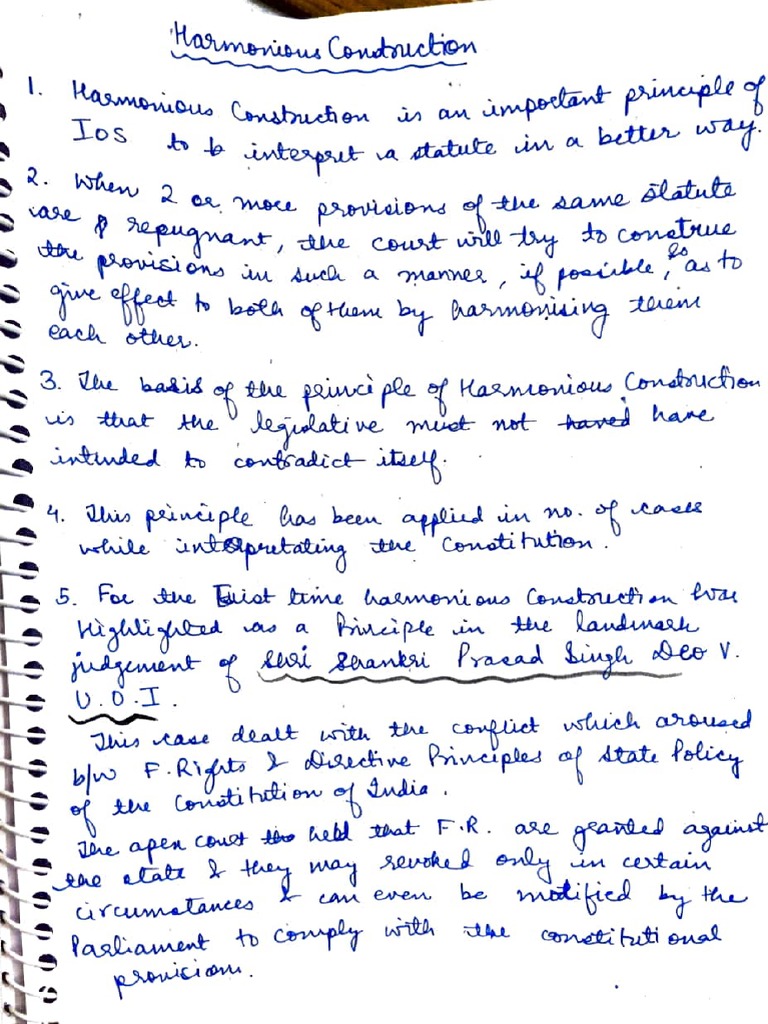 Harmonious Construction
1. Harmonious Construction is an important principle of
IOS to b interpret a statute in a better way.
2. When 2 or more provisions of the same statute
are repugnant, the court will try to construe
the provisions in such a manner, if possible, so as to
give effect to both of them by harmonising them
each other.
3. The basis of the principle of Harmonious Construction
is that the legislative must not haved have
intended to contradict itself.
4. This principle has been applied in no. of cases
while interpretating the Constitution.
5. For the First time harmonious Construction was
Highlighted as a Principle in the landmark
judgement of Shri Shankri Prasad Singh Deo V.
U.O.I.
This case dealt with the conflict which aroused
b/w F.Rights & Directive Principles of State Policy
of the Constitution of India.
The apex court held that F.R. are granted against
the state & they may revoked only in certain
circumstances & can even be modified by the
Parliament to comply with the constitutional
provision.